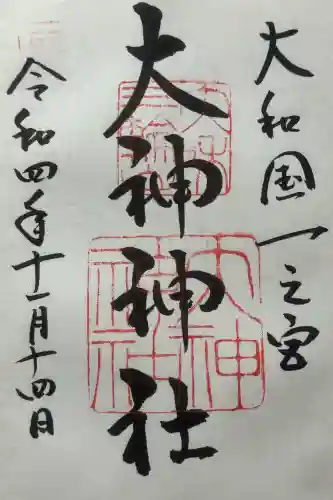 大和国一之宮
大神神社
令和四年十一月十四日